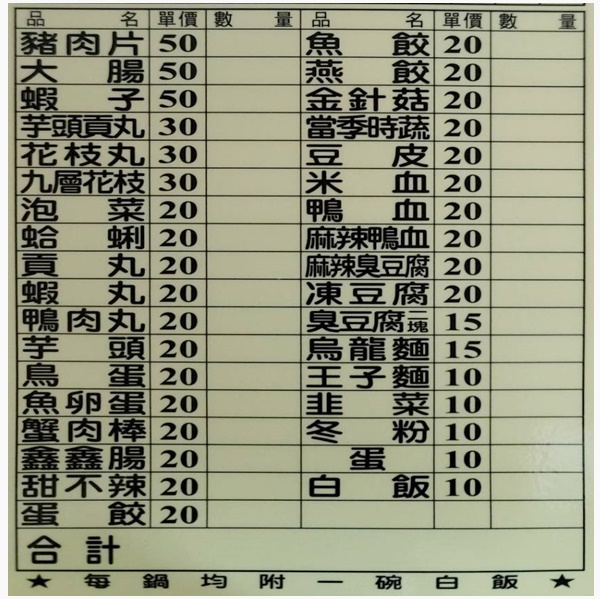 品名 單價 數量 品名 單價 數量
豬肉片 50 魚餃 20
大腸 50 燕餃 20
蝦子 50 金針菇 20
芋頭貢丸 30 當季時蔬 20
花枝丸 30 豆皮 20
九層花枝 30 米血 20
泡菜 20 鴨血 20
蛤蜊 20 麻辣鴨血 20
貢丸 20 麻辣臭豆腐 20
蝦丸 20 凍豆腐 20
鴨肉丸 20 臭豆腐二塊 15
芋頭 20 烏龍麵 15
鳥蛋 20 王子麵 10
魚卵蛋 20 韭菜 10
蟹肉棒 20 冬粉 10
鑫鑫腸 20 蛋 10
甜不辣 20 白飯 10
蛋餃 20
合計
★ 每鍋均附一碗白飯 ★